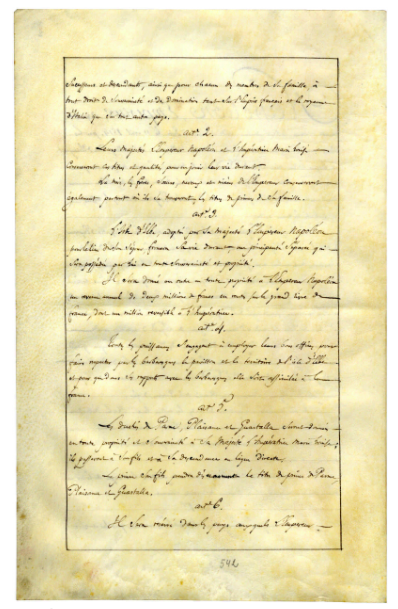 successeurs et descendants, ainsi que pour chacun des membres de sa famille, à
tout droit de souveraineté et de domination tant sur l'Empire français et le royaume
d'Italie que sur tout autre pays.
art. 2.
Leurs Majestés l'Empereur Napoléon et l'Impératrice Marie Louise
conserveront ces titres et qualités pour en jouir leur vie durant.
La mère, les frères, sœurs, neveux et nièces de l'Empereur conserveront
également partout où ils se trouveront, les titres de princes de sa famille.
art. 3.
L'isle d'Elbe, adoptée par Sa Majesté l'Empereur Napoléon
pour lieu de son séjour, formera, sa vie durant, une principauté séparée qui
sera possédée par lui en toute souveraineté et propriété.
Il sera donné en outre en toute propriété à l'Empereur Napoléon
un revenu annuel de deux millions de francs en rente sur le grand livre de
france, dont un million réversible à l'Impératrice.
art. 4.
Toutes les puissances s'engagent à employer leurs bons offices pour
faire respecter par les barbaresques le pavillon et le territoire de l'isle d'Elbe
et pour que dans ses rapports avec les barbaresques elle soit assimilée à la
france.
art. 5.
Les duchés de Parme, Plaisance et Guastalla seront donnés
en toute propriété et souveraineté à Sa Majesté l'Impératrice Marie Louise;
ils passeront à son fils et à sa descendance en ligne directe.
Le prince son fils prendra dès ce moment le titre de prince de Parme
Plaisance et Guastalla.
art. 6.
Il sera réservé dans les pays auxquels l'Empereur
592